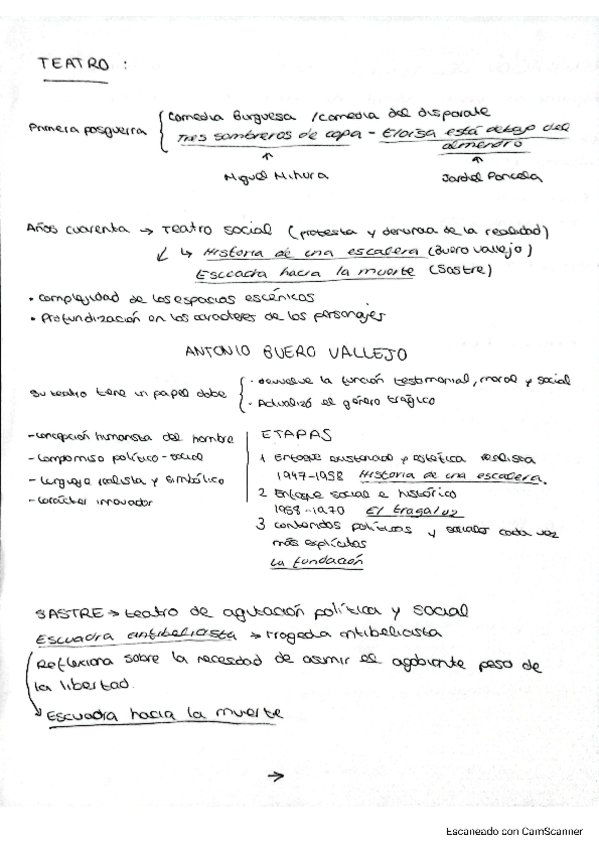 TEATRO :
Primera posguerra
Comedia Burguesa / comedia del disparate
Tres sombreros de copa - Eloísa está debajo del
almendro
Miguel Mihura
Jardiel Poncela
Años cuarenta → Teatro social (protesta y denuncia de la realidad)
↳ Historia de una escalera (Buero Vallejo)
Escuadra hacia la muerte (Sastre)
• Complejidad de los espacios escénicos
• Profundización en los caracteres de los personajes
ANTONIO BUERO VALLEJO
Su teatro tiene un papel doble
· devuelve la función testimonial, moral y social
· Actualizó el género trágico
- concepción humanista del hombre
- compromiso político-social
- lenguaje realista y simbólico
- carácter innovador
ETAPAS
1 Enfoque existencial y estética realista
1947-1958 Historia de una escalera.
2 Enfoque social e histórico
1958-1970 El tragaluz
3 contenidos políticos y sociales cada vez
más explícitos
La fundación
SASTRE → teatro de agitación política y social
Escuadra antibelicista → tragedia antibelicista
Reflexiona sobre la necesidad de asumir el agobiante peso de
la libertad.
Escuadra hacia la muerte
→
Escaneado con CamScanner